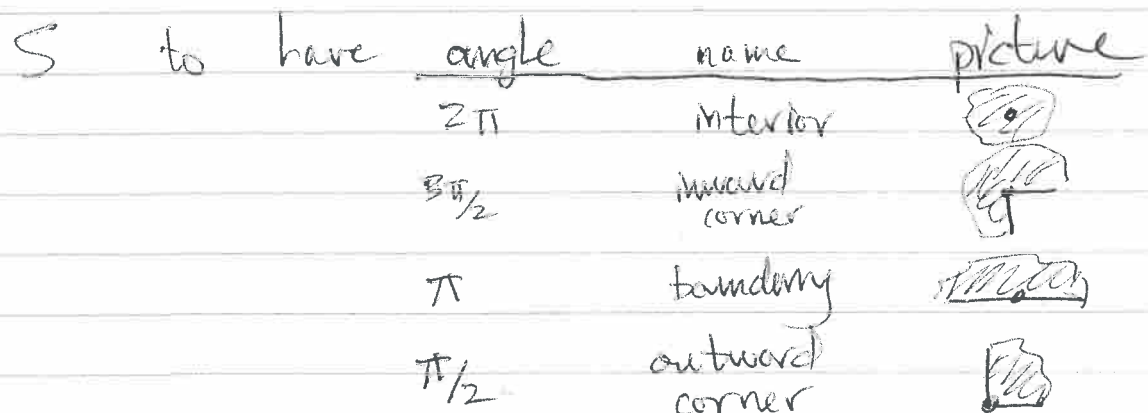 S to have angle name picture
2π interior
3π/2 inward
corner
π boundary
π/2 outward
corner